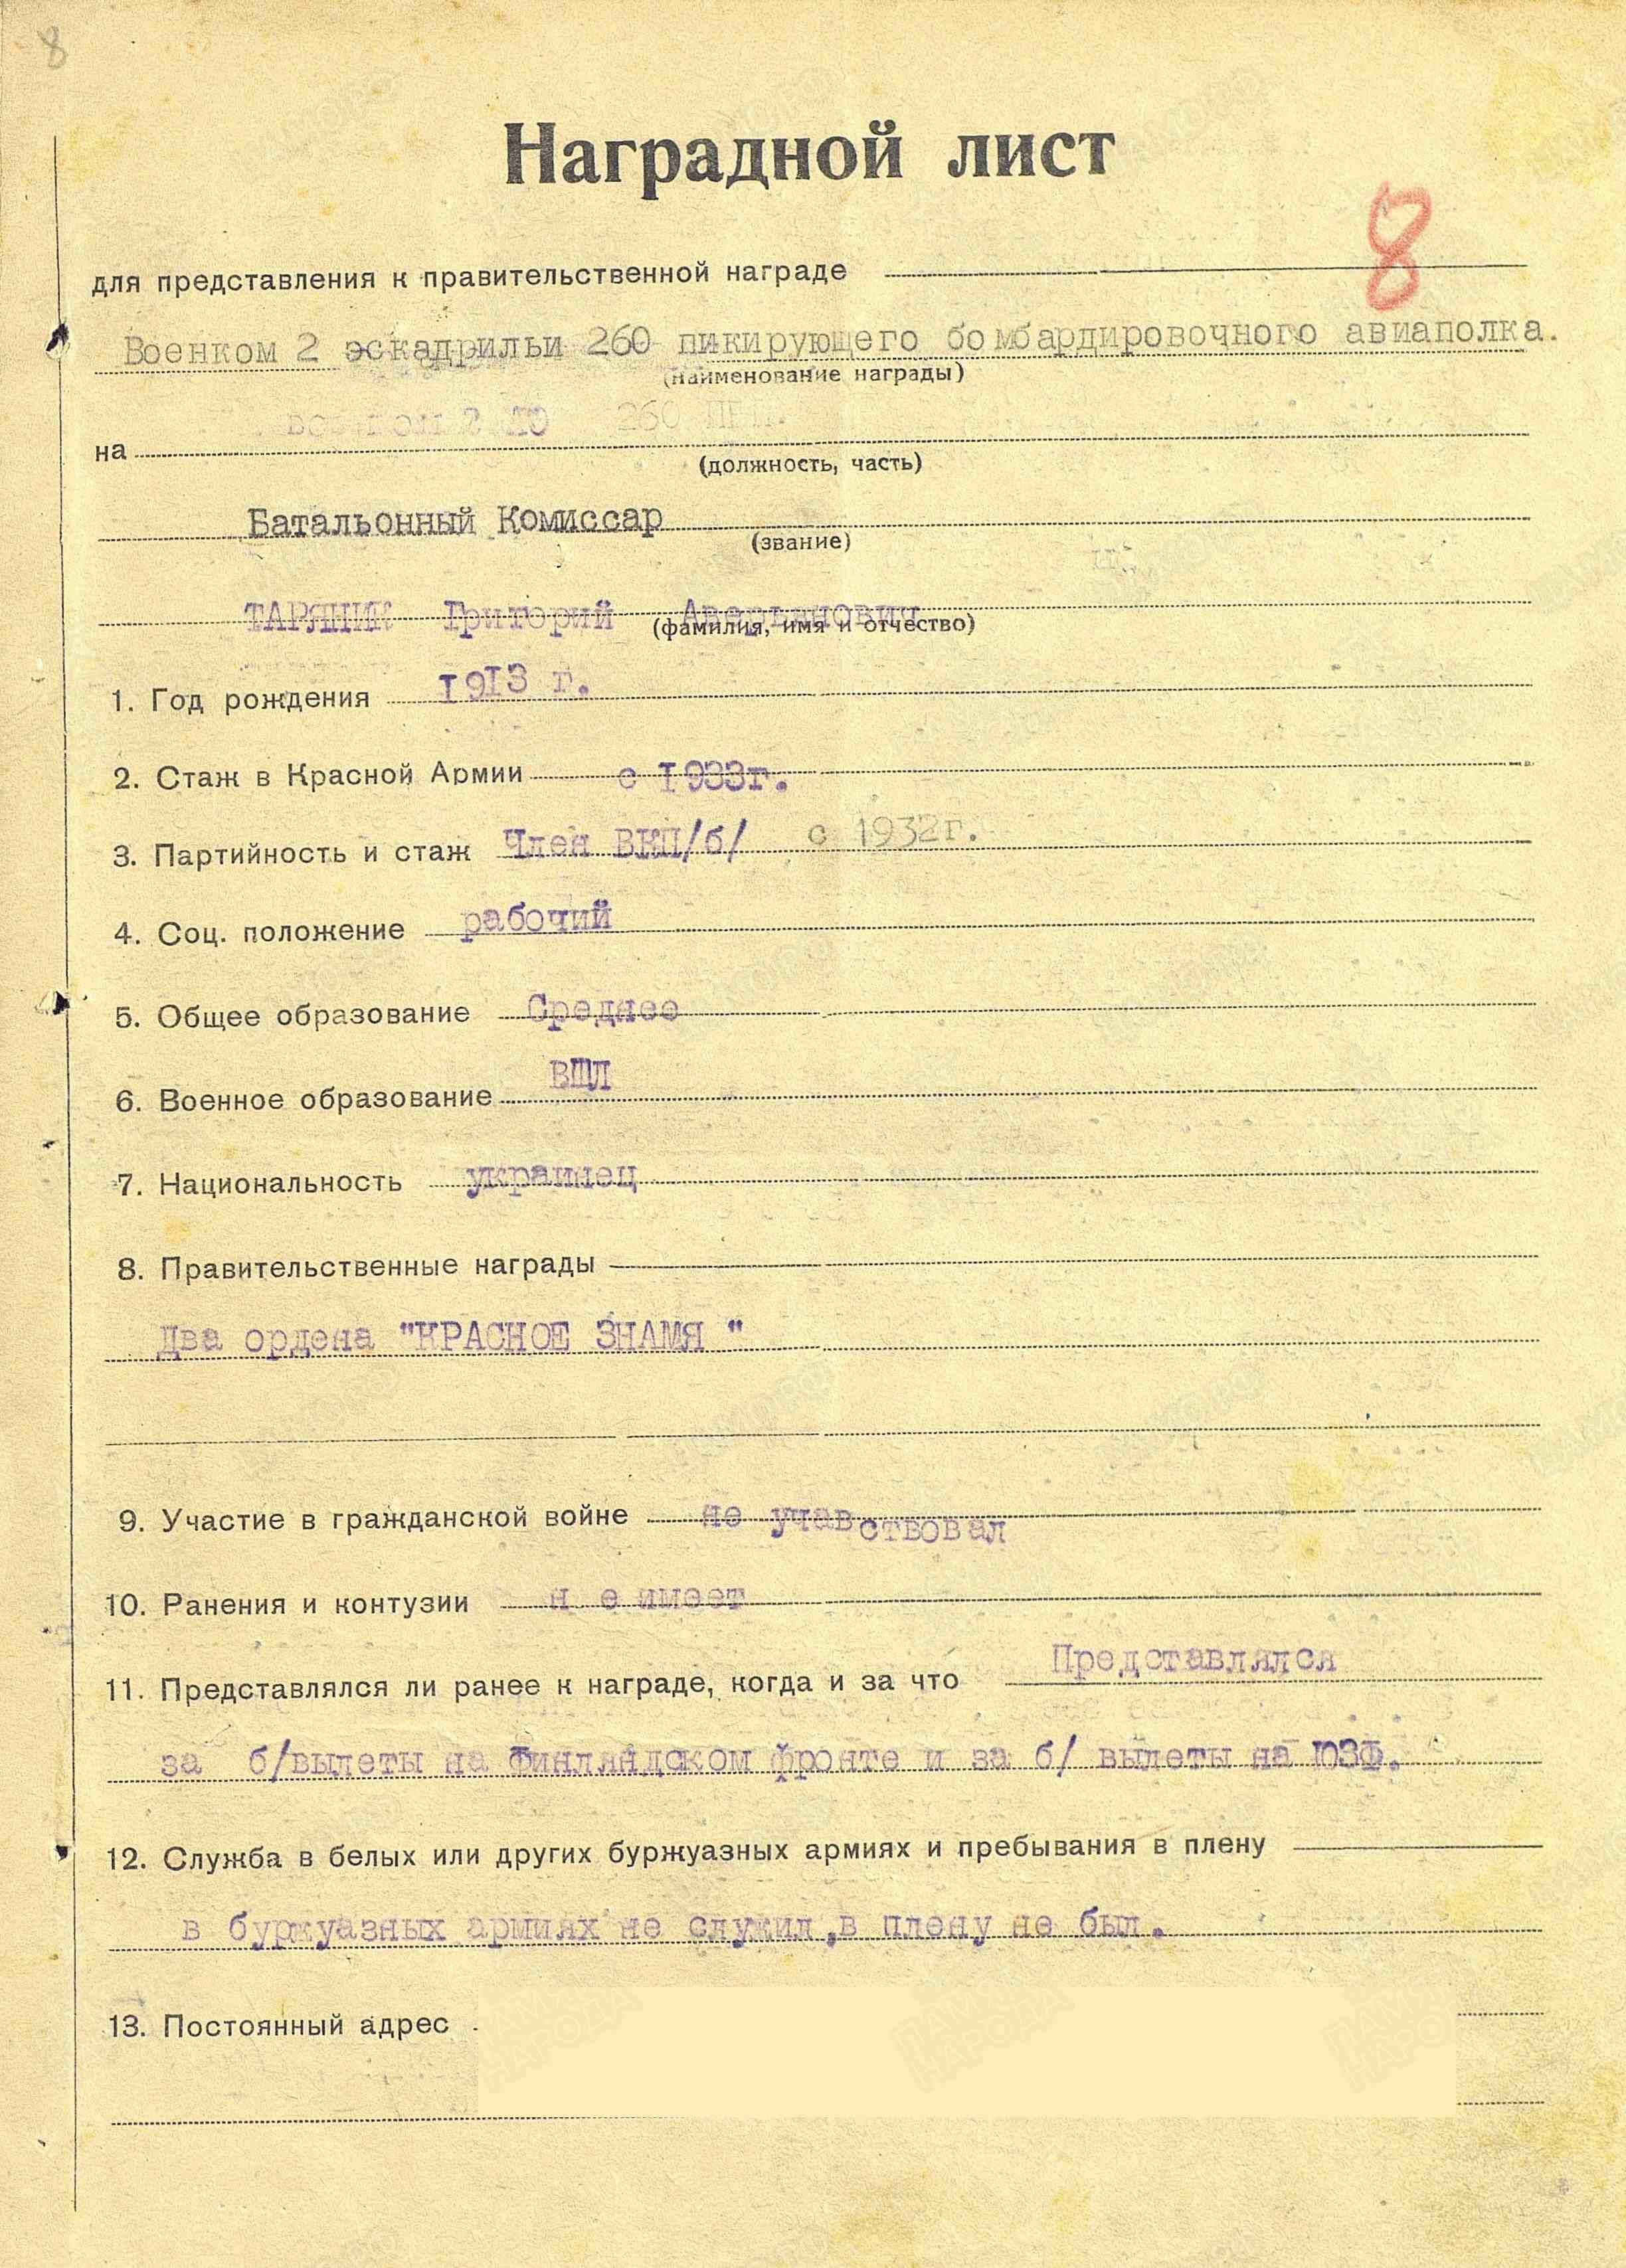 8
Наградной лист
8
для представления к правительственной награде
Военком 2 эскадрильи 260 пикирующего бомбардировочного авиаполка.
(наименование награды)
260
на
(должность, часть)
Батальонный Комиссар
(звание)
ТАРЯНИК Григорий Аверьянович
(фамилия, имя и отчество)
1. Год рождения I9I3 г.
2. Стаж в Красной Армии с I933г.
3. Партийность и стаж Член ВКП/б/ с 1932г.
4. Соц. положение рабочий
5. Общее образование Среднее
6. Военное образование ВШЛ
7. Национальность украинец
8. Правительственные награды
Два ордена "КРАСНОЕ ЗНАМЯ "
9. Участие в гражданской войне не учавствовал
10. Ранения и контузии н е имеет
11. Представлялся ли ранее к награде, когда и за что Представлялся
за б/вылеты на Финландском фронте и за б/ вылеты на ЮЗФ.
12. Служба в белых или других буржуазных армиях и пребывания в плену
в буржуазных армиях не служил,в плену не был.
13. Постоянный адрес